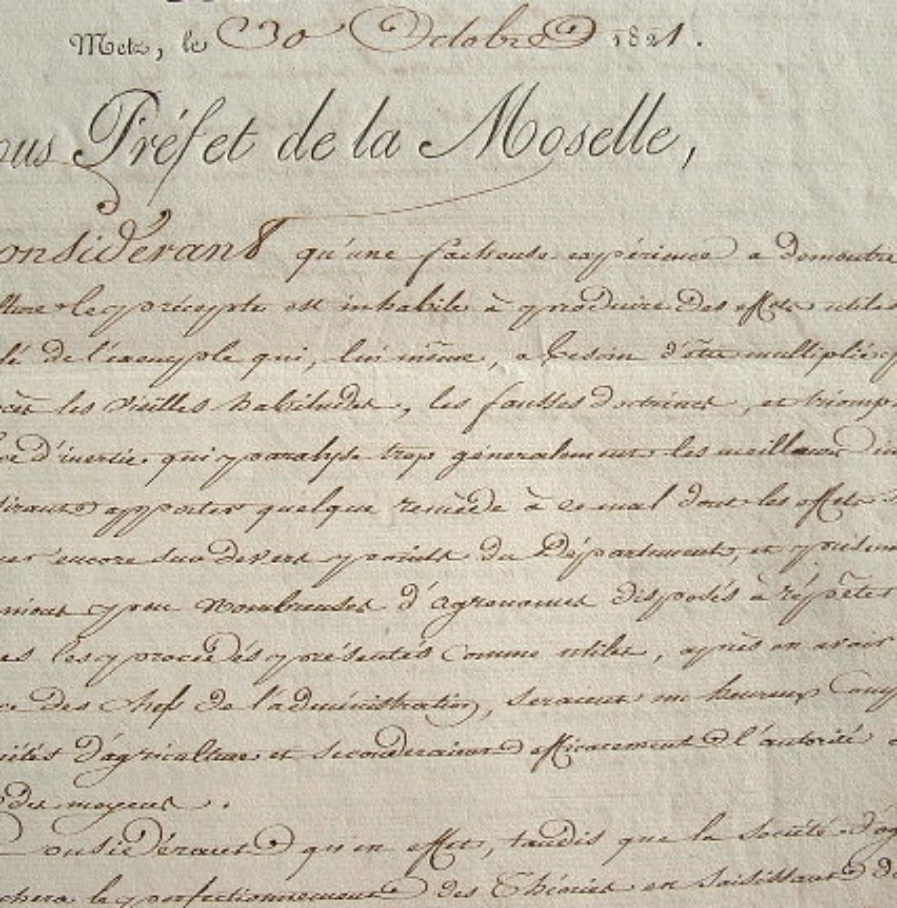 Metz, le 30 Octobre 1821.
ous Préfet de la Moselle,
onsidérant qu'une facheuse expérience a démontré
lture le précepte est inhabile à produire des effets utiles
dé de l'exemple qui, lui même, a besoin d'être multiplié
les vieilles habitudes, les fausses doctrines, et triomp
ce d'inertie qui paralyse trop généralement les meilleures in
sirant apporter quelque remède à ce mal dont les effets
encore sur divers points du Département, et
peu nombreuses d'agronomes disposés à répéter
es les procédés présentés comme utiles, après en avoir
ce des chefs de l'administration, seraient un heureux
iétés d'agriculture et seconderaient efficacement l'autorité
des moyens.
Considérant qu'en effet, tandis que la société d'ag
chera le perfectionnement des Théories en saisissant